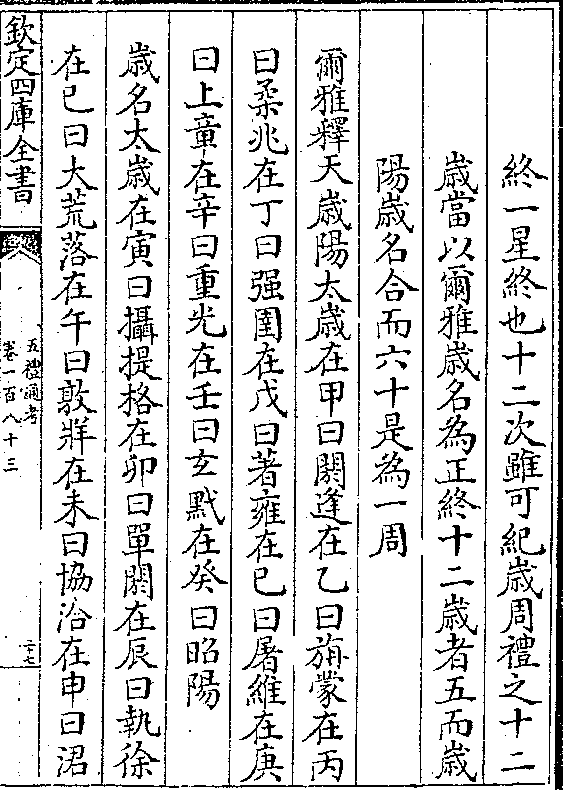 終一星終也十二次雖可紀歲周禮之十二
歲當以爾雅歲名為正終十二歲者五而歲
陽歲名合而六十是為一周
爾雅釋天歲陽太歲在甲曰閼逢在乙曰旃蒙在丙
曰柔兆在丁曰强圉在戊曰著雍在已曰屠維在庚
曰上章在辛曰重光在壬曰玄黓在癸曰昭陽
歲名太歲在寅曰攝提格在卯曰單閼在辰曰執徐
在巳曰大荒落在午曰敦牂在未曰協洽在申曰涒
欽定四庫全書
五禮通考
卷一百八十三
二十七